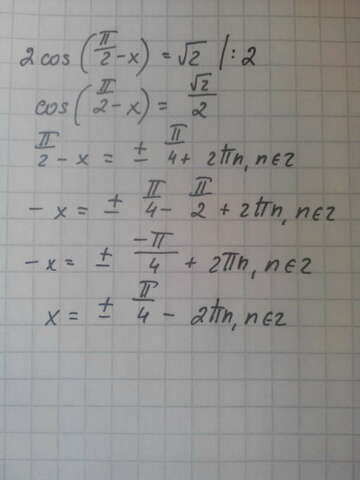 2cos(π/2 - x) = √2 | : 2
cos(π/2 - x) = √2/2
π/2 - x = ± π/4 + 2πn, n∈z
- x = ± π/4 - π/2 + 2πn, n∈z
- x = ± -π/4 + 2πn, n∈z
x = ± π/4 - 2πn, n∈z